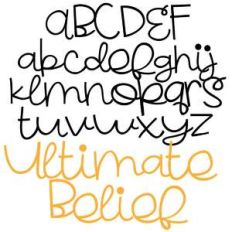 ABCDEF
abcdefghij
klmnopqrs
tuvwxyz
Ultimate
Belief